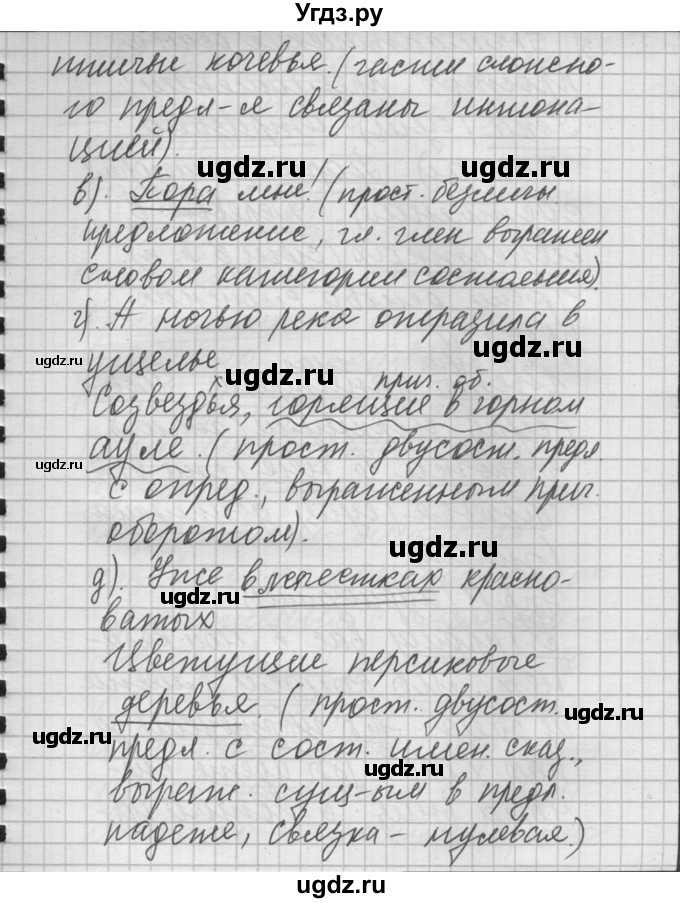 Угдз.ру
птичьи кочевья. (части сложно-
го предл-я связаны интона-
цией).
ugdz.ru ugdz.ru
в). Пора мне! (прост. безличн.
предложение, гл. член выражен
словом категории состояния).
г). А ночью река отразила в
ugdz.ru ugdz.ru
ущелье ugdz.ru прич. об.
Созвездья, горящие в горном
ауле. (прост. двусост. предл.
ugdz.ru
с опред., выраженным прич.
оборотом).
ugdz.ru
д). Уже в лепестках красно-
ugdz.ru
ватых
Цветущие персиковые
деревья. (прост. двусост.
ugdz.ru ugdz.ru
предл. с сост. имен. сказ.,
ugdz.ru
выраж. сущ-ым в предл.
падеже, связка – нулевая.)
ugdz.ru
ugdz.ru